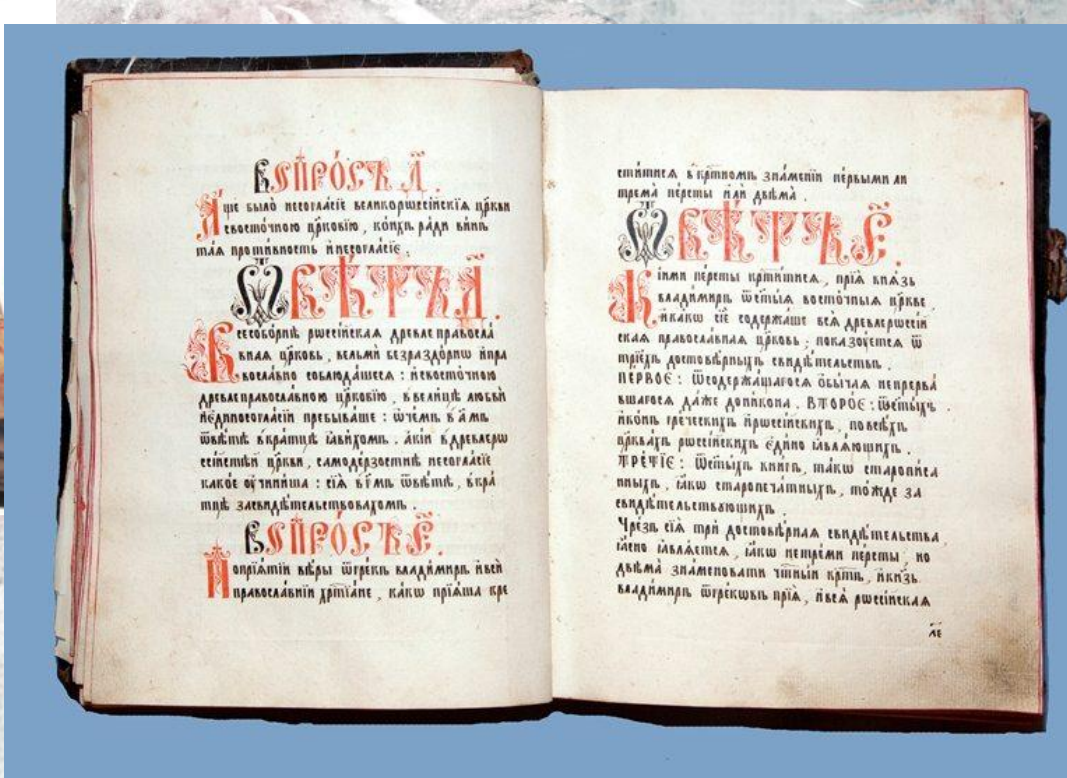 ВОПРО́СЪ Д҃.
А҆́ще было̀ несогла́сїе великорѡссі́йскїѧ цр҃кви
съвосто́чною цр҃ковїю, ко́ихъ ра́ди ви́нъ
таѧ проти́вность и҆несогла́сїе.
Ѿвѣ́тъ Д҃.
Всесобо́рнѣ рѡссі́йскаѧ древлеправосла́
внаѧ цр҃ковь, вельмѝ безраздо́рнѡ и҆пра
восла́вно соблюда́шесѧ: и҆съвосто́чною
древлеправосла́вною цр҃ковїю, въвели́цѣ любвѝ
и҆є҆диносогла́сїи пребыва́ше: ѡ҆че́мъ въ а҃мъ
ѿвѣ́тѣ въкра́тцѣ ꙗ҆ви́хомъ. а҆кїи вдревлерѡ
ссі́йстѣй цр҃кви, самоде́рзостнѣ несогла́сїе
како́е ᲂу҆чини́ша: сїѧ̀ въ г҃мъ ѿвѣ́тѣ, вкра́
тцѣ засвидѣ́тельствовахомъ.
ВОПРО́СЪ Е҃.
Попрїѧ́тїи вѣ́ры ѿгре́къ влади́миръ и҆всѝ
правосла́внїи хрⷭ҇тїа́не, ка́кѡ прїѧ́ша кре
сти́тисѧ в кⷭ҇тномъ зна́менїи пе́рвыми ли
тремѧ̀ пе́рсты и҆лѝ двѣма̀.
Ѿвѣ́тъ Е҃.
Кі́ими пе́рсты крⷭ҇ти́тисѧ, прїѧ̀ кнѧ́зь
влади́миръ ѿст҃ы́ѧ восто́чныѧ цр҃кве
и҆ка́кѡ сїѐ содержа́ше всѧ̀ древлерѡссі́й
скаѧ правосла́внаѧ цр҃ковь; показꙋ́етсѧ ѿ
трїе́хъ достовѣ́рныхъ свидѣ́тельствъ.
ПЕ́РВОЕ: ѿсодержа́щагосѧ ѻ҆бы́чаѧ непрерва́
вшагосѧ да́же дони́кона. ВТОРО́Е: ѿст҃ы́хъ
и҆ко́нъ гре́ческихъ и҆рѡссі́йскихъ, повсѣ́хъ
цр҃квахъ рѡссі́йскихъ є҆ди́но ꙗ҆влѧ́ющихъ.
ТРЕ́ТЇЕ: ѿст҃ы́хъ кни́гъ, та́кѡ старопи́са
нныхъ, ꙗ҆́кѡ старопеча́тныхъ, то́жде за
свидѣ́тельствꙋющихъ.
Чре́зъ сїѧ̀ трѝ достовѣ́рнаѧ свидѣ́тельства,
ꙗ҆́сно ꙗ҆влѧ́етсѧ, ꙗ҆́кѡ нетре́ми пе́рсты, но
двѣма̀ зна́меновати чⷭ҇тны́й крⷭ҇тъ, и҆кнѧ́зь
влади́миръ ѿгре́кѡвъ прїѧ̀, и҆всѧ̀ рѡссі́йскаѧ
ле